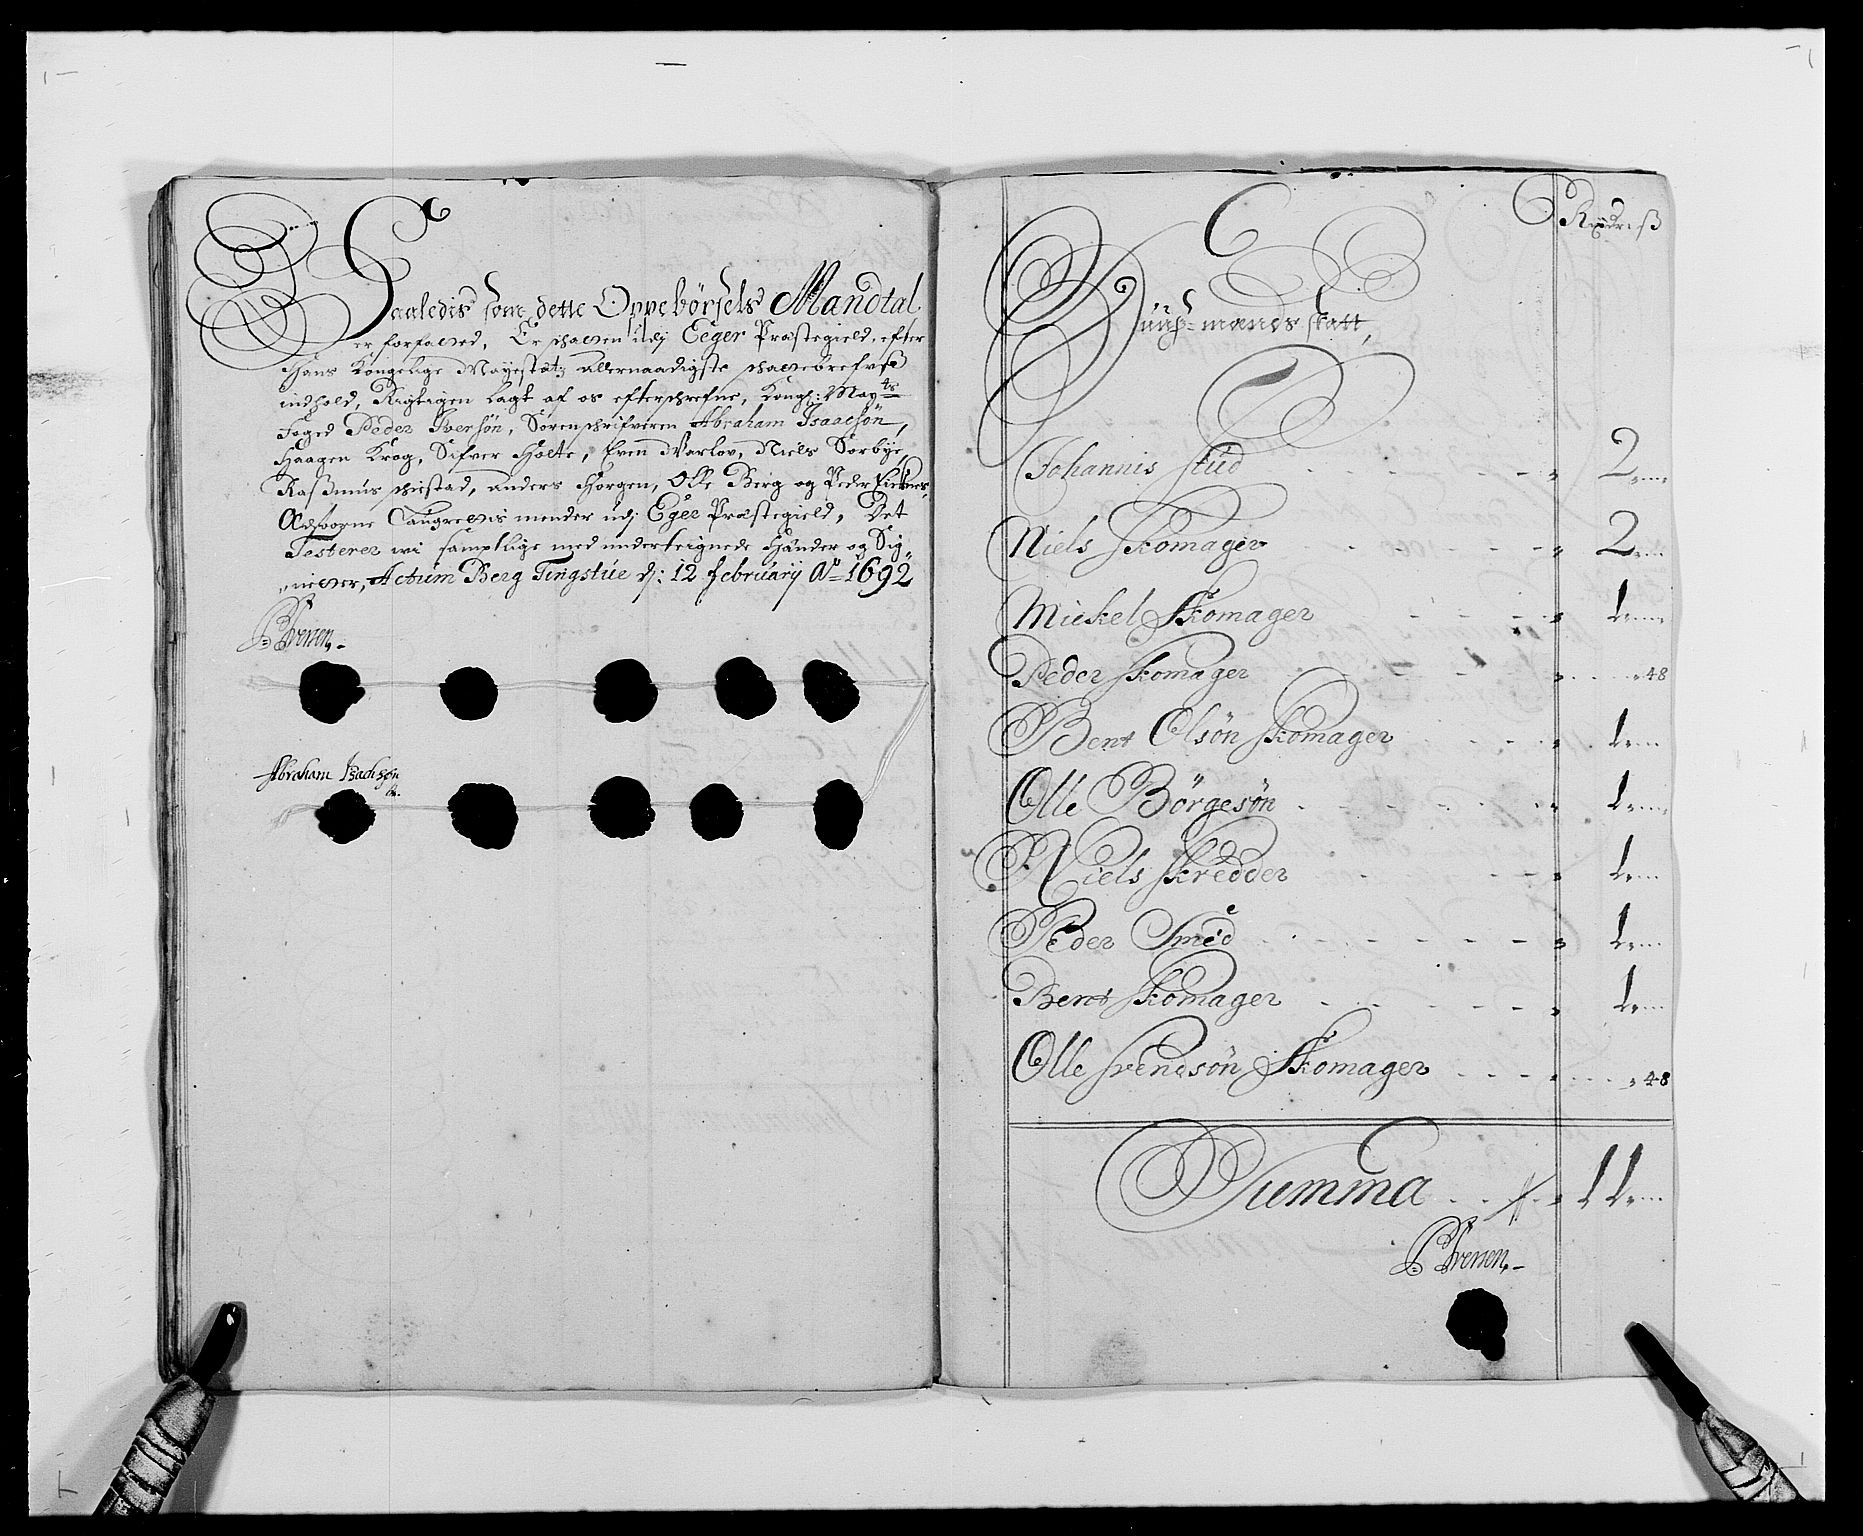 Saaledis som dette Oppebörsels Mandtal
er forfatted, Er schatten udj Eeger Præstegield, efter
Hans Kongelige Mayestætz allernaadigste schattebrefvis
indhold, Rigtigen lagt af os efterschrefne, Kongl: Mayts
Foged Peder Iversön, Sorenschrifveren Abraham Isaachsön,
Haagen Krog, Sifver Holte, Even Varlov, Niels Sorbye,
Rasmus schiestad, anders Horgen, Olle Berg og Peder
Edsvorne Laugrettis mender udj Eger Præstegield, Det
Testerer wi samptlige med underteignede Hånder og Sig-
netter, Actum Berg Tingstue d: 12 February Ao 1692
P Iversen
Abraham Isachsøn
Rixdr ß
Huuß-mands skatt
Johannis stud 2
Niels Skomager 2
Mickel Skomager 1
Peder Skomager 48
Bent Olsön Skomager 1
Olle Börgesön 1
Niels Skredder 1
Peder Smed 1
Bent Skomager 1
Olle Svendsön Skomager 48
Summa 11
P Iversen